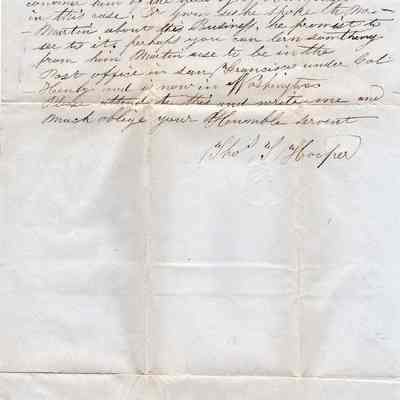 in this case. Dr Gwin also spoke to Mr
Martin about this Business, he promist to
see to it, perhaps you can lern somthing
from him Martin use to be in the
Post office in san Francisco under Col
Henly and is now in Washington
attend to this and write me and
much oblige your Honomble servent
Thos J Hooper